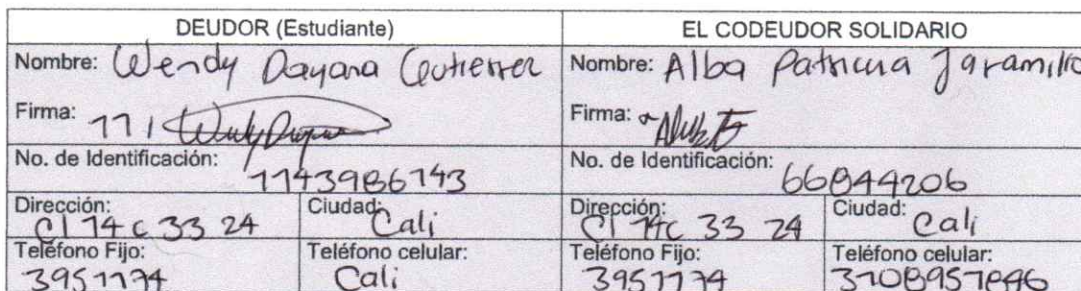 DEUDOR (Estudiante) EL CODEUDOR SOLIDARIO
Nombre: Wendy Dayana Gutierrez Nombre: Alba Patricia Jaramillo
Firma: Firma:
No. de Identificación: 1143986143 No. de Identificación: 66844206
Dirección: Cl 74 c 33 24 Ciudad: Cali Dirección: Cl 74c 33 24 Ciudad: Cali
Teléfono Fijo: 3951174 Teléfono celular: Cali Teléfono Fijo: 3951174 Teléfono celular: